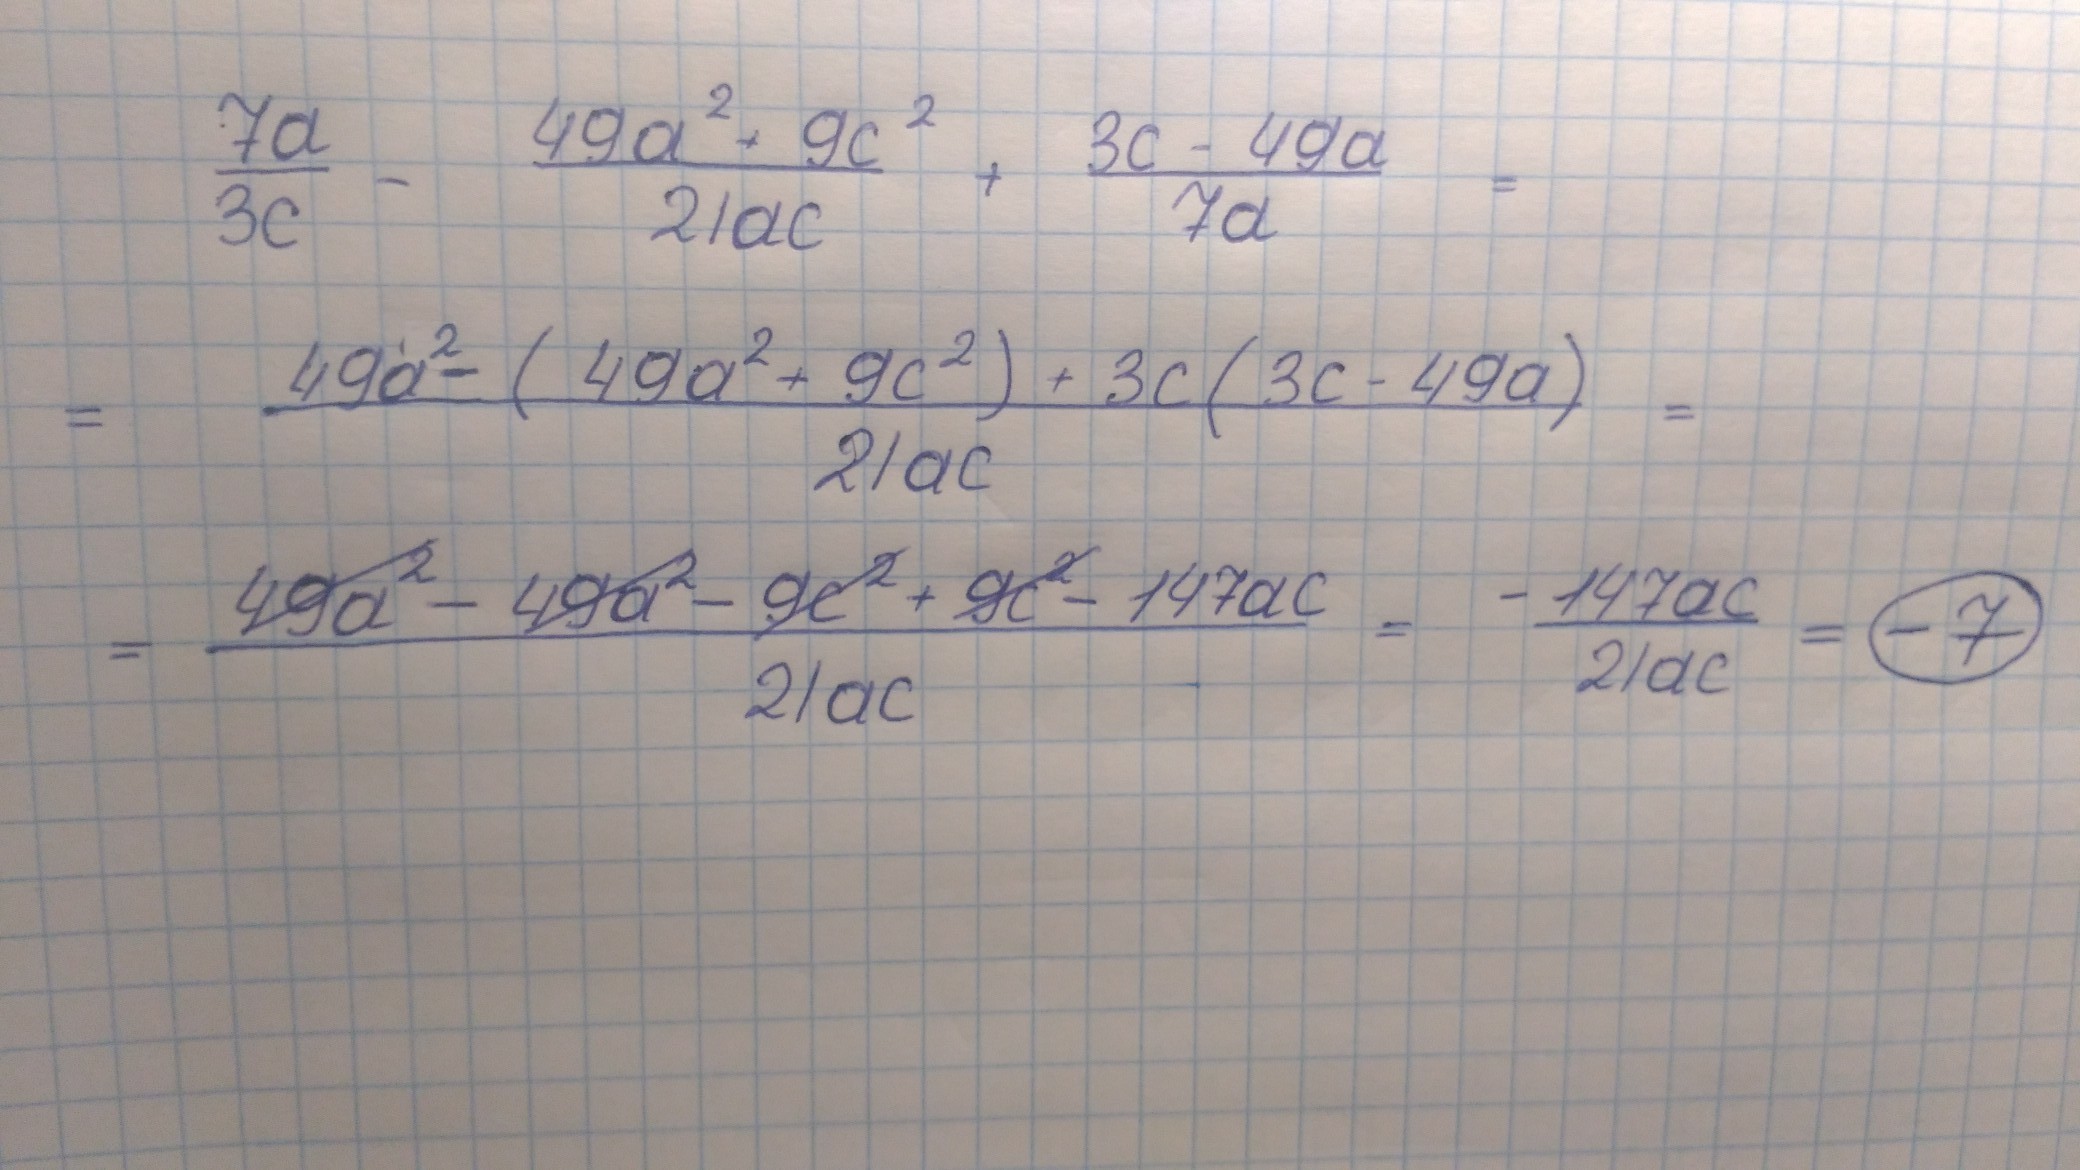 7a/3c - (49a² + 9c²)/21ac + (3c - 49a)/7a =
= (49a² - (49a² + 9c²) + 3c(3c - 49a))/21ac =
= (49a² - 49a² - 9c² + 9c² - 147ac)/21ac = -147ac/21ac = -7